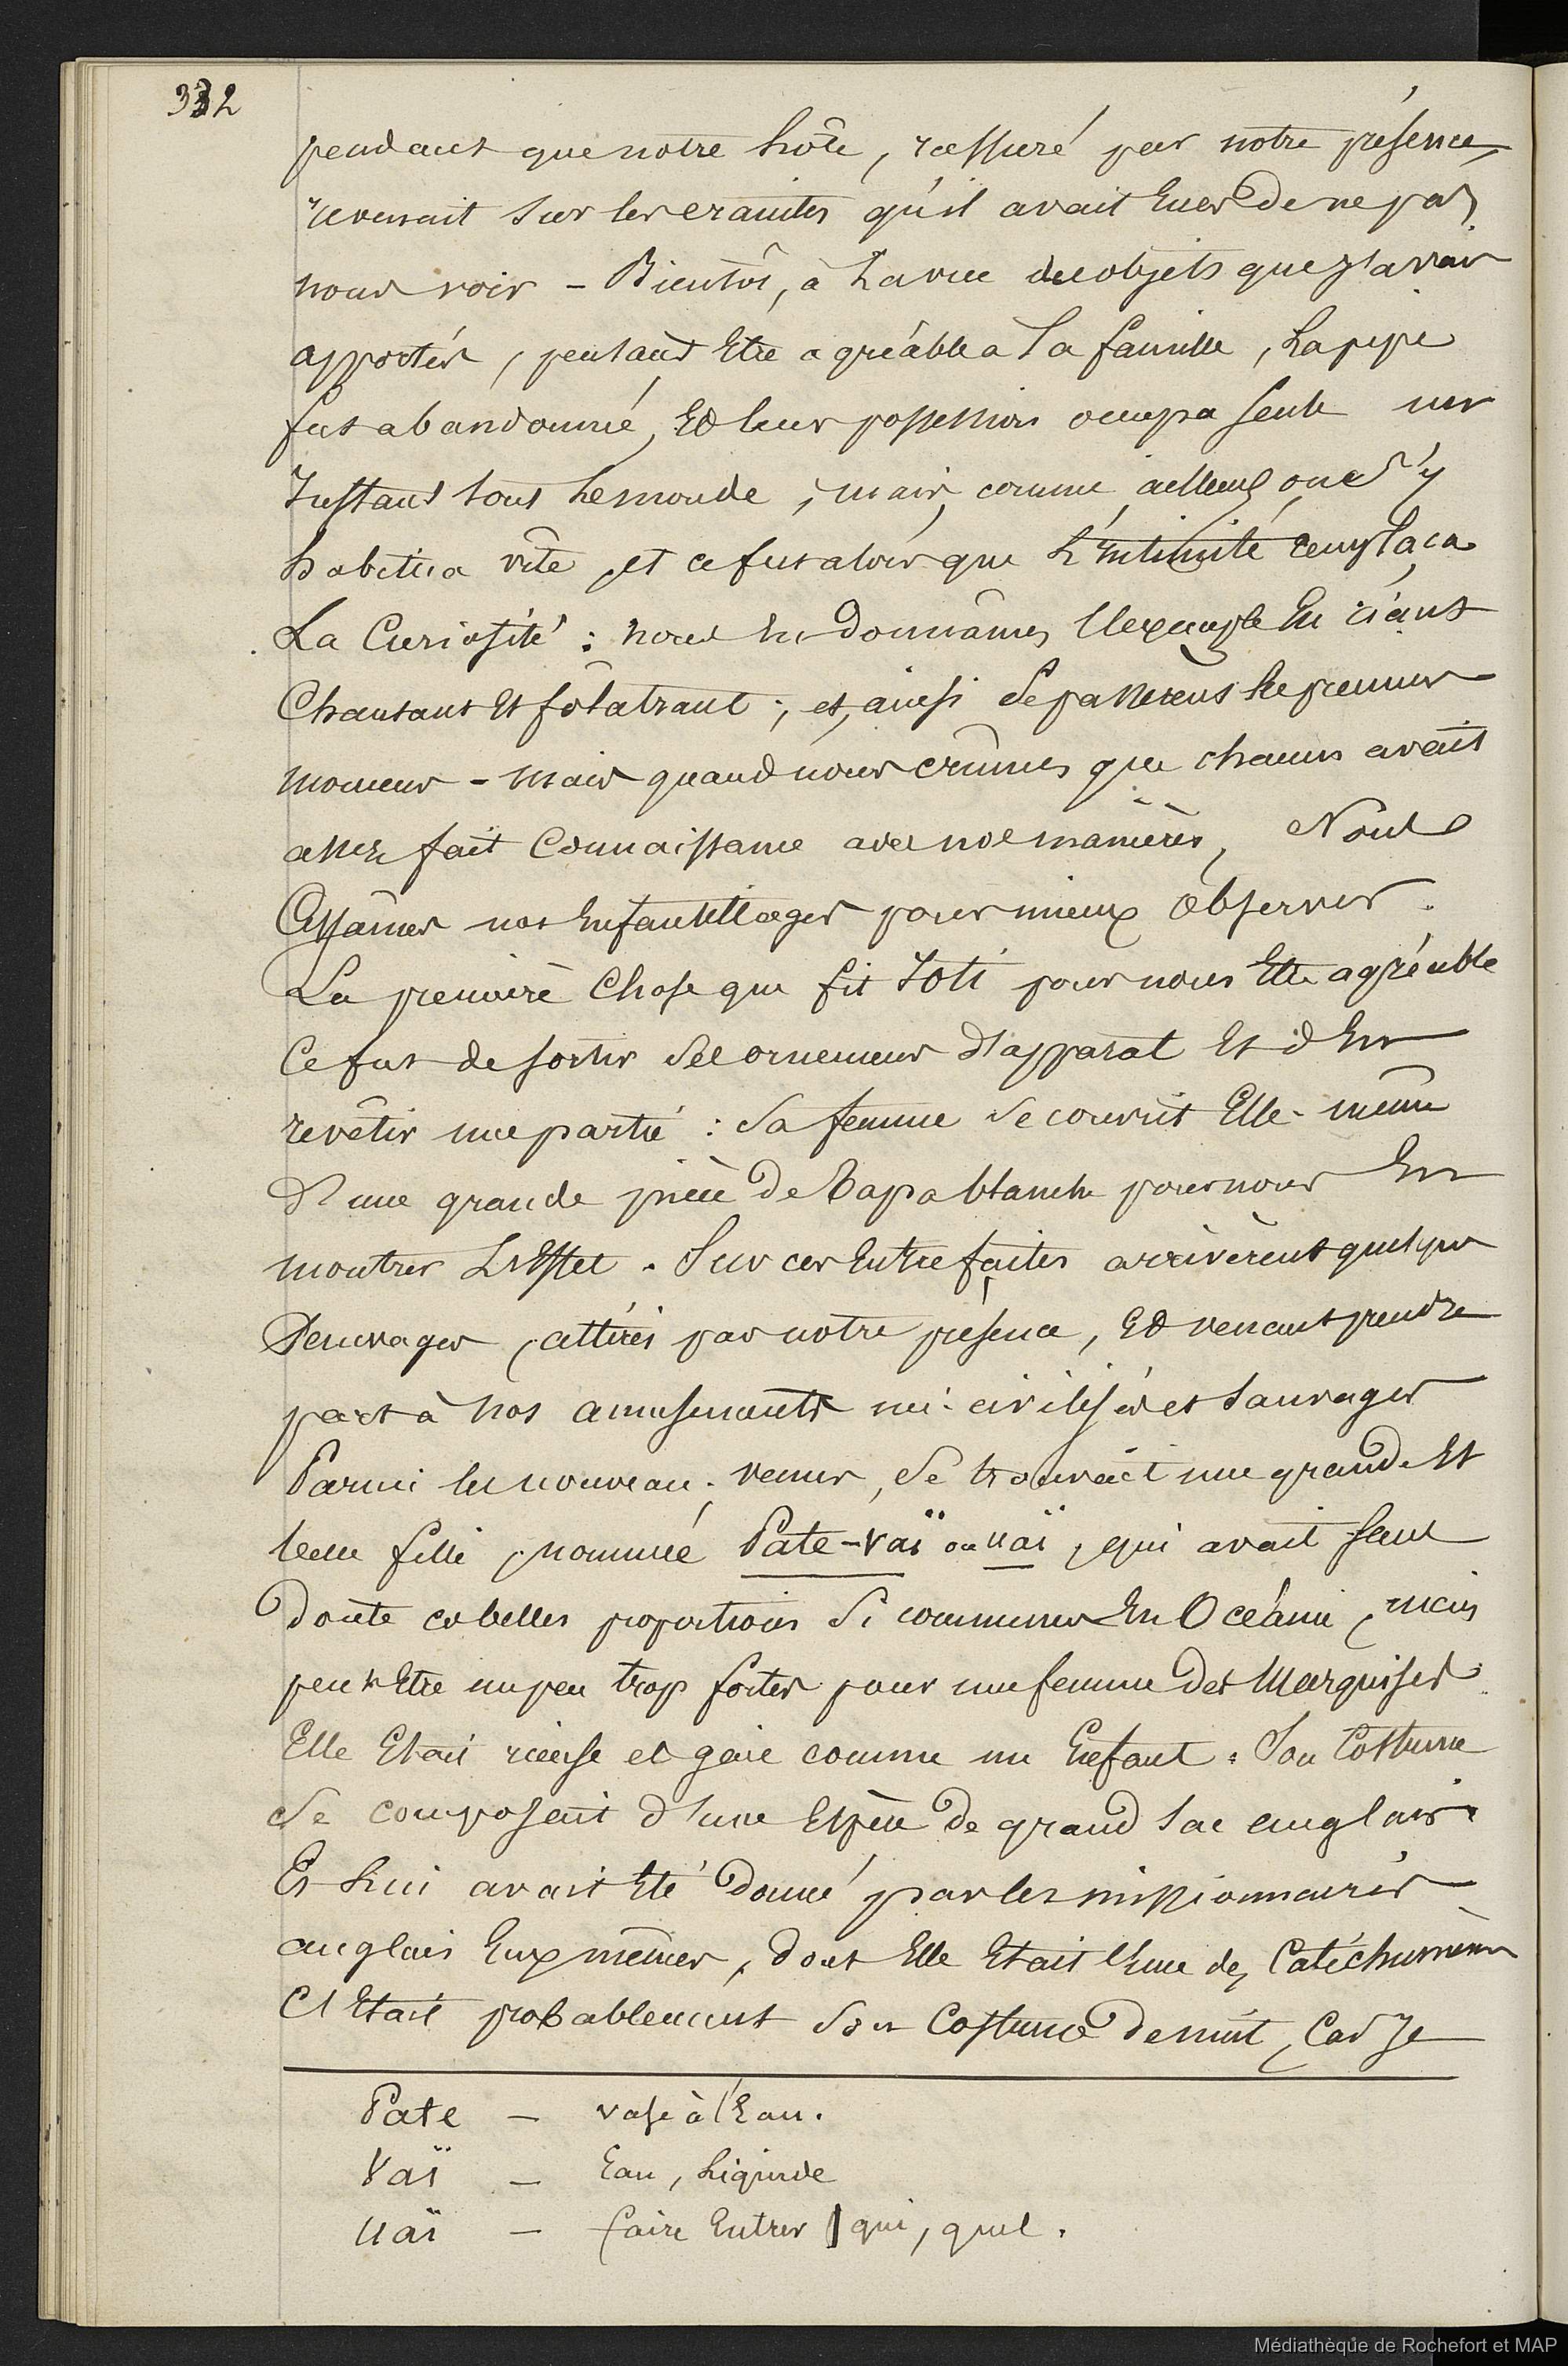 332
pendant que notre hôte, rassuré par notre présence,
revenait sur les craintes qu'il avait Eues de ne pas
nous voir - Bientôt, à La vue des objets que j'avais
apportés, pensant Etre agréable à Sa famille, La pipe
fut abandonné, Et leur possession occupa seule un
Instant tout Le monde, mais, comme ailleurs, on s'y
habitua vite, et ce fut alors que L'Intimité remplaça
La Curiosité : nous En donnâmes l'Exemple En riant
Chantant Et folâtrant ; et, ainsi Se passèrent Les premiers
momens - mais quand nous crûmes que chacun avait
assez fait Connaissance avec nos manières, Nous
Cessâmes nos Enfantillages pour mieux Observer.
La première Chose que fit Ioti pour nous Etre agréable
Ce fut de sortir Ses ornemens d'apparat Et d'En
revêtir une partie : Sa femme Se couvrit Elle-même
D'une grande pièce de Tapa blanche pour nous En
montrer L'Effet. Sur ces Entrefaites arrivèrent quelques
Sauvages, attirés par notre présence, Et venant prendre
part à nos amusements mi-civilisés et Sauvages
Parmi les nouveau-venus, Se trouvait une grande Et
belle fille, nommée Pate-Vaï ou Uaï, qui avait sans
Doute ces belles proportions Si communes En Océanie, mais
peut Etre un peu trop fortes pour une femme des Marquises.
Elle Etait rieuse et gaie comme un Enfant. Son Costume
Se composait d'une Espèce de grand sac anglais.
Et Lui avait Eté Donné par les missionnaires
anglais Eux mêmes, dont Elle Etait l'Une des Catéchumènes
C'Etait probablement Son Costume de nuit, Car Je
Pate - vase à l'Eau.
Vaï - Eau, Liquide
Uaï - faire Entrer | qui, quel.
Médiathèque de Rochefort et MAP